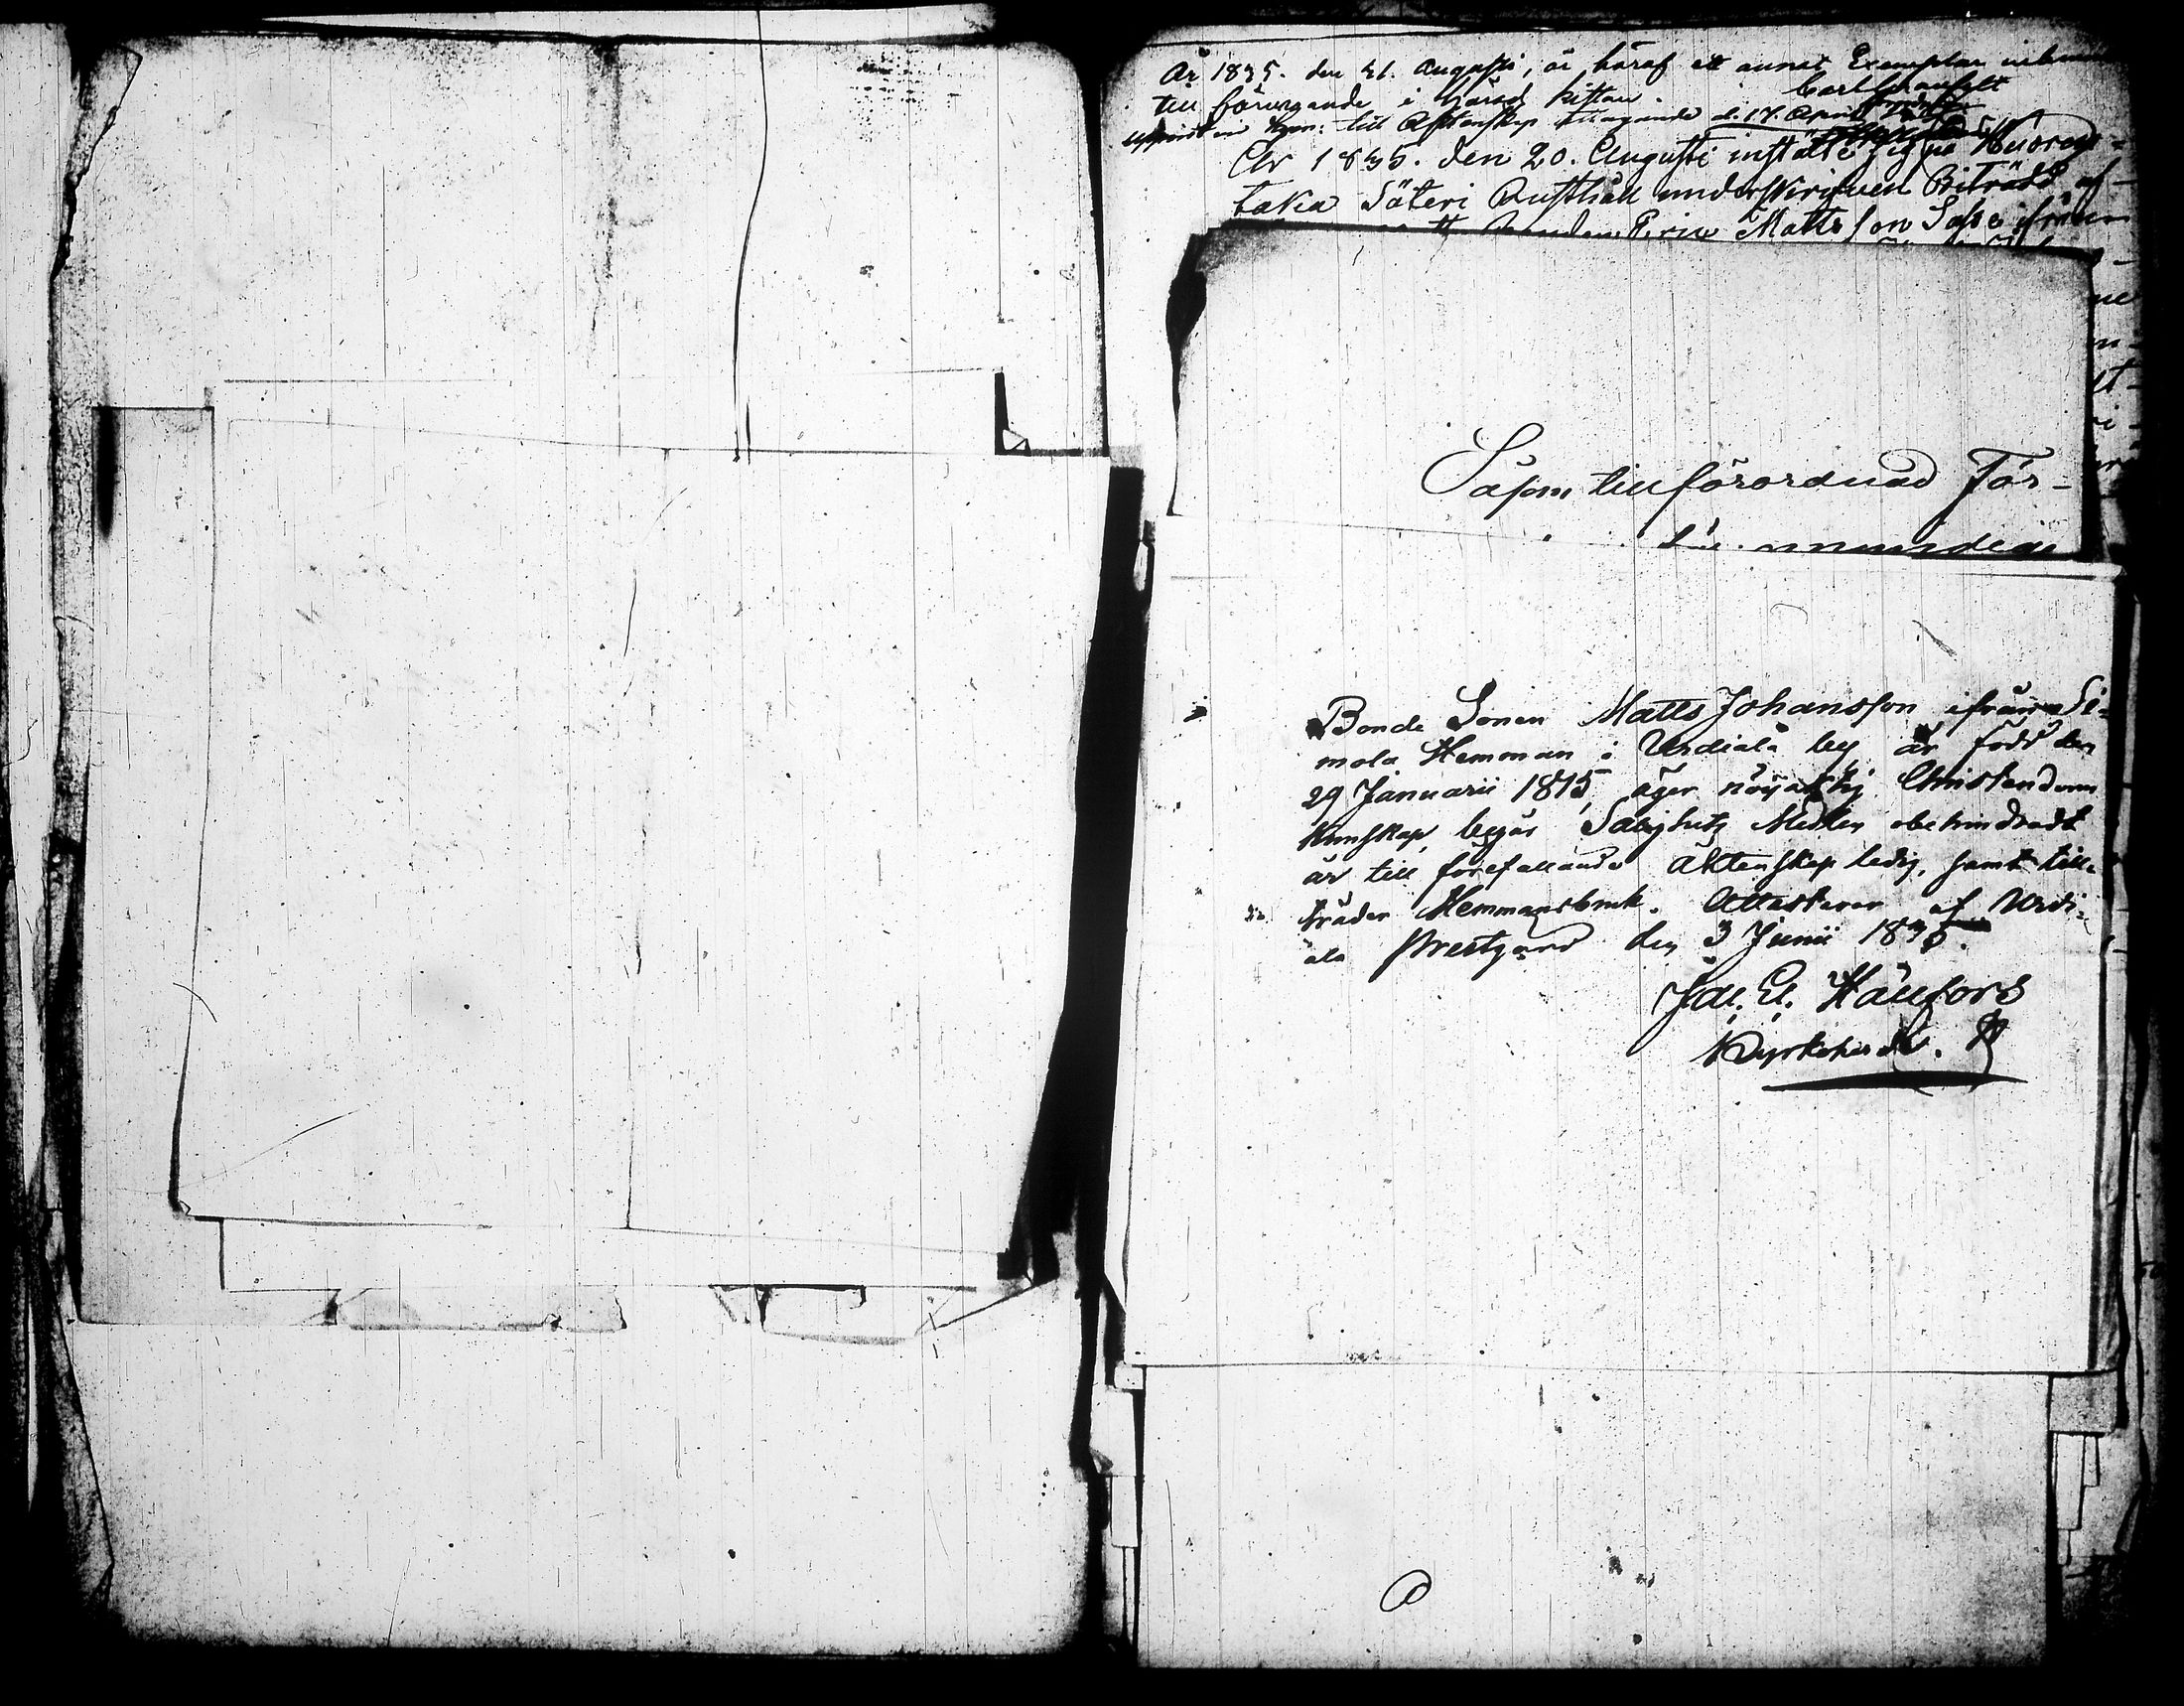 År 1835. den 31. Augusti, är häraf ett annat Exemplar
till förvarande i Härads kistan. Carl Granfelt
till Äktenskap d. 17. April
År 1835. den 20. Augusti instälte sig på Kuoros-
taka Säteri Rusthåll underskrifven Biträdd af
Matts son ifrån
Såsom tillförordnad För-
Bonde Sonen Matts Johansson ifrån Si-
mola Hemman i Urdiala by är född den
29 Januarii 1815, äger nöjaktig Christendoms
kunskap, begår Salighets Medlen obehindradt
är till förefallande Äktenskap ledig, samt till-
träder Hemmansbruk. Attesterar af Urdi-
ala Prestgård den 3 Junii 1835.
Kyrkoherde.